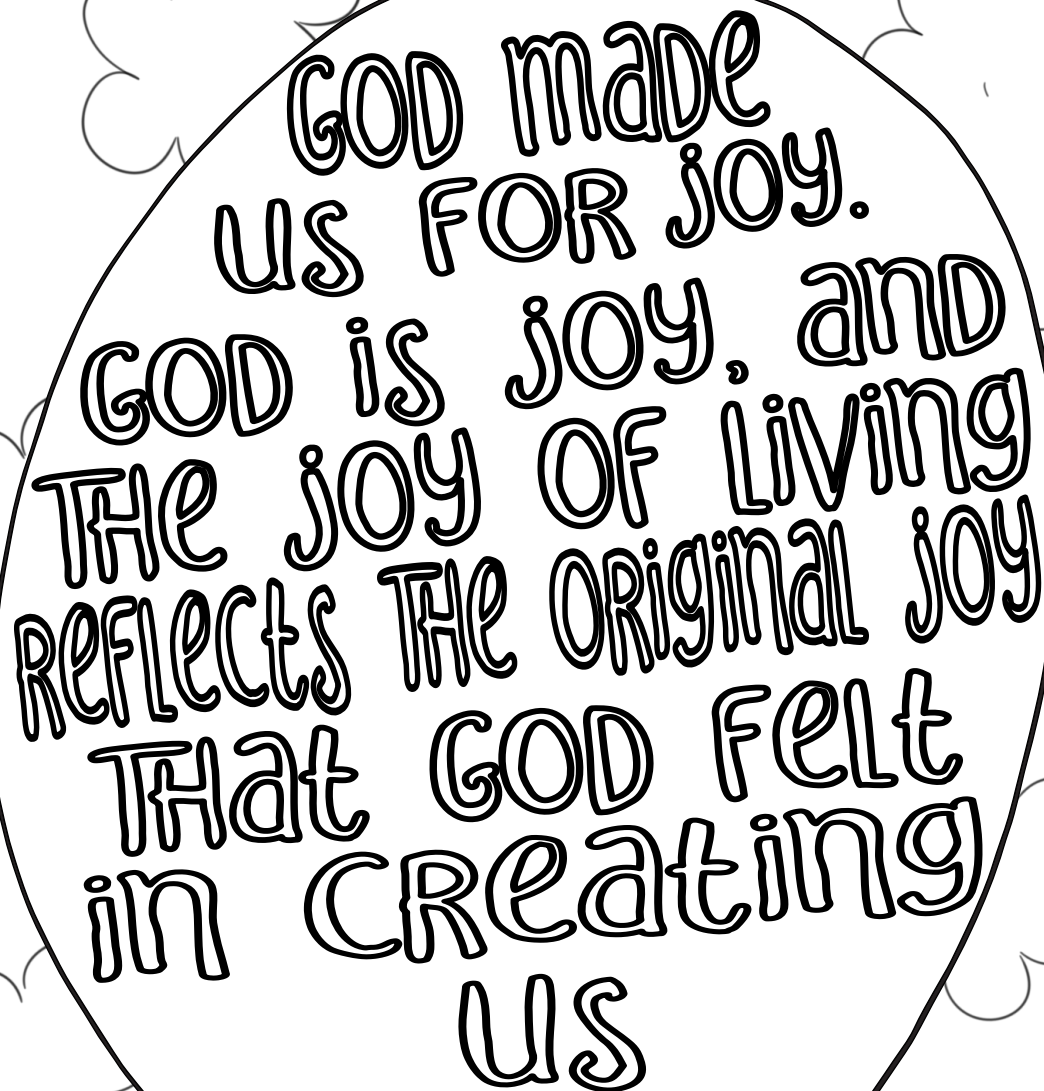 GOD made
us FOR joy.
GOD is joy, and
THe joy OF Living
ReFLects THe ORiginaL joy
THat GOD FeLt
in CReating
us